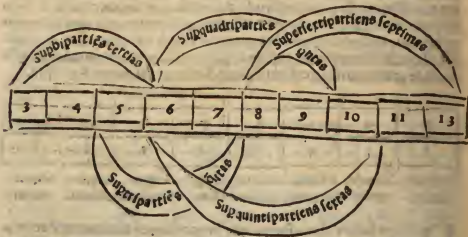 Supbipartiēs tertias
Supquadripartiēs qntas
Superſextipartiens ſeptimas
3 4 5 6 7 8 9 10 11 13
Suptripartiēs
Supquintipartiens ſextas